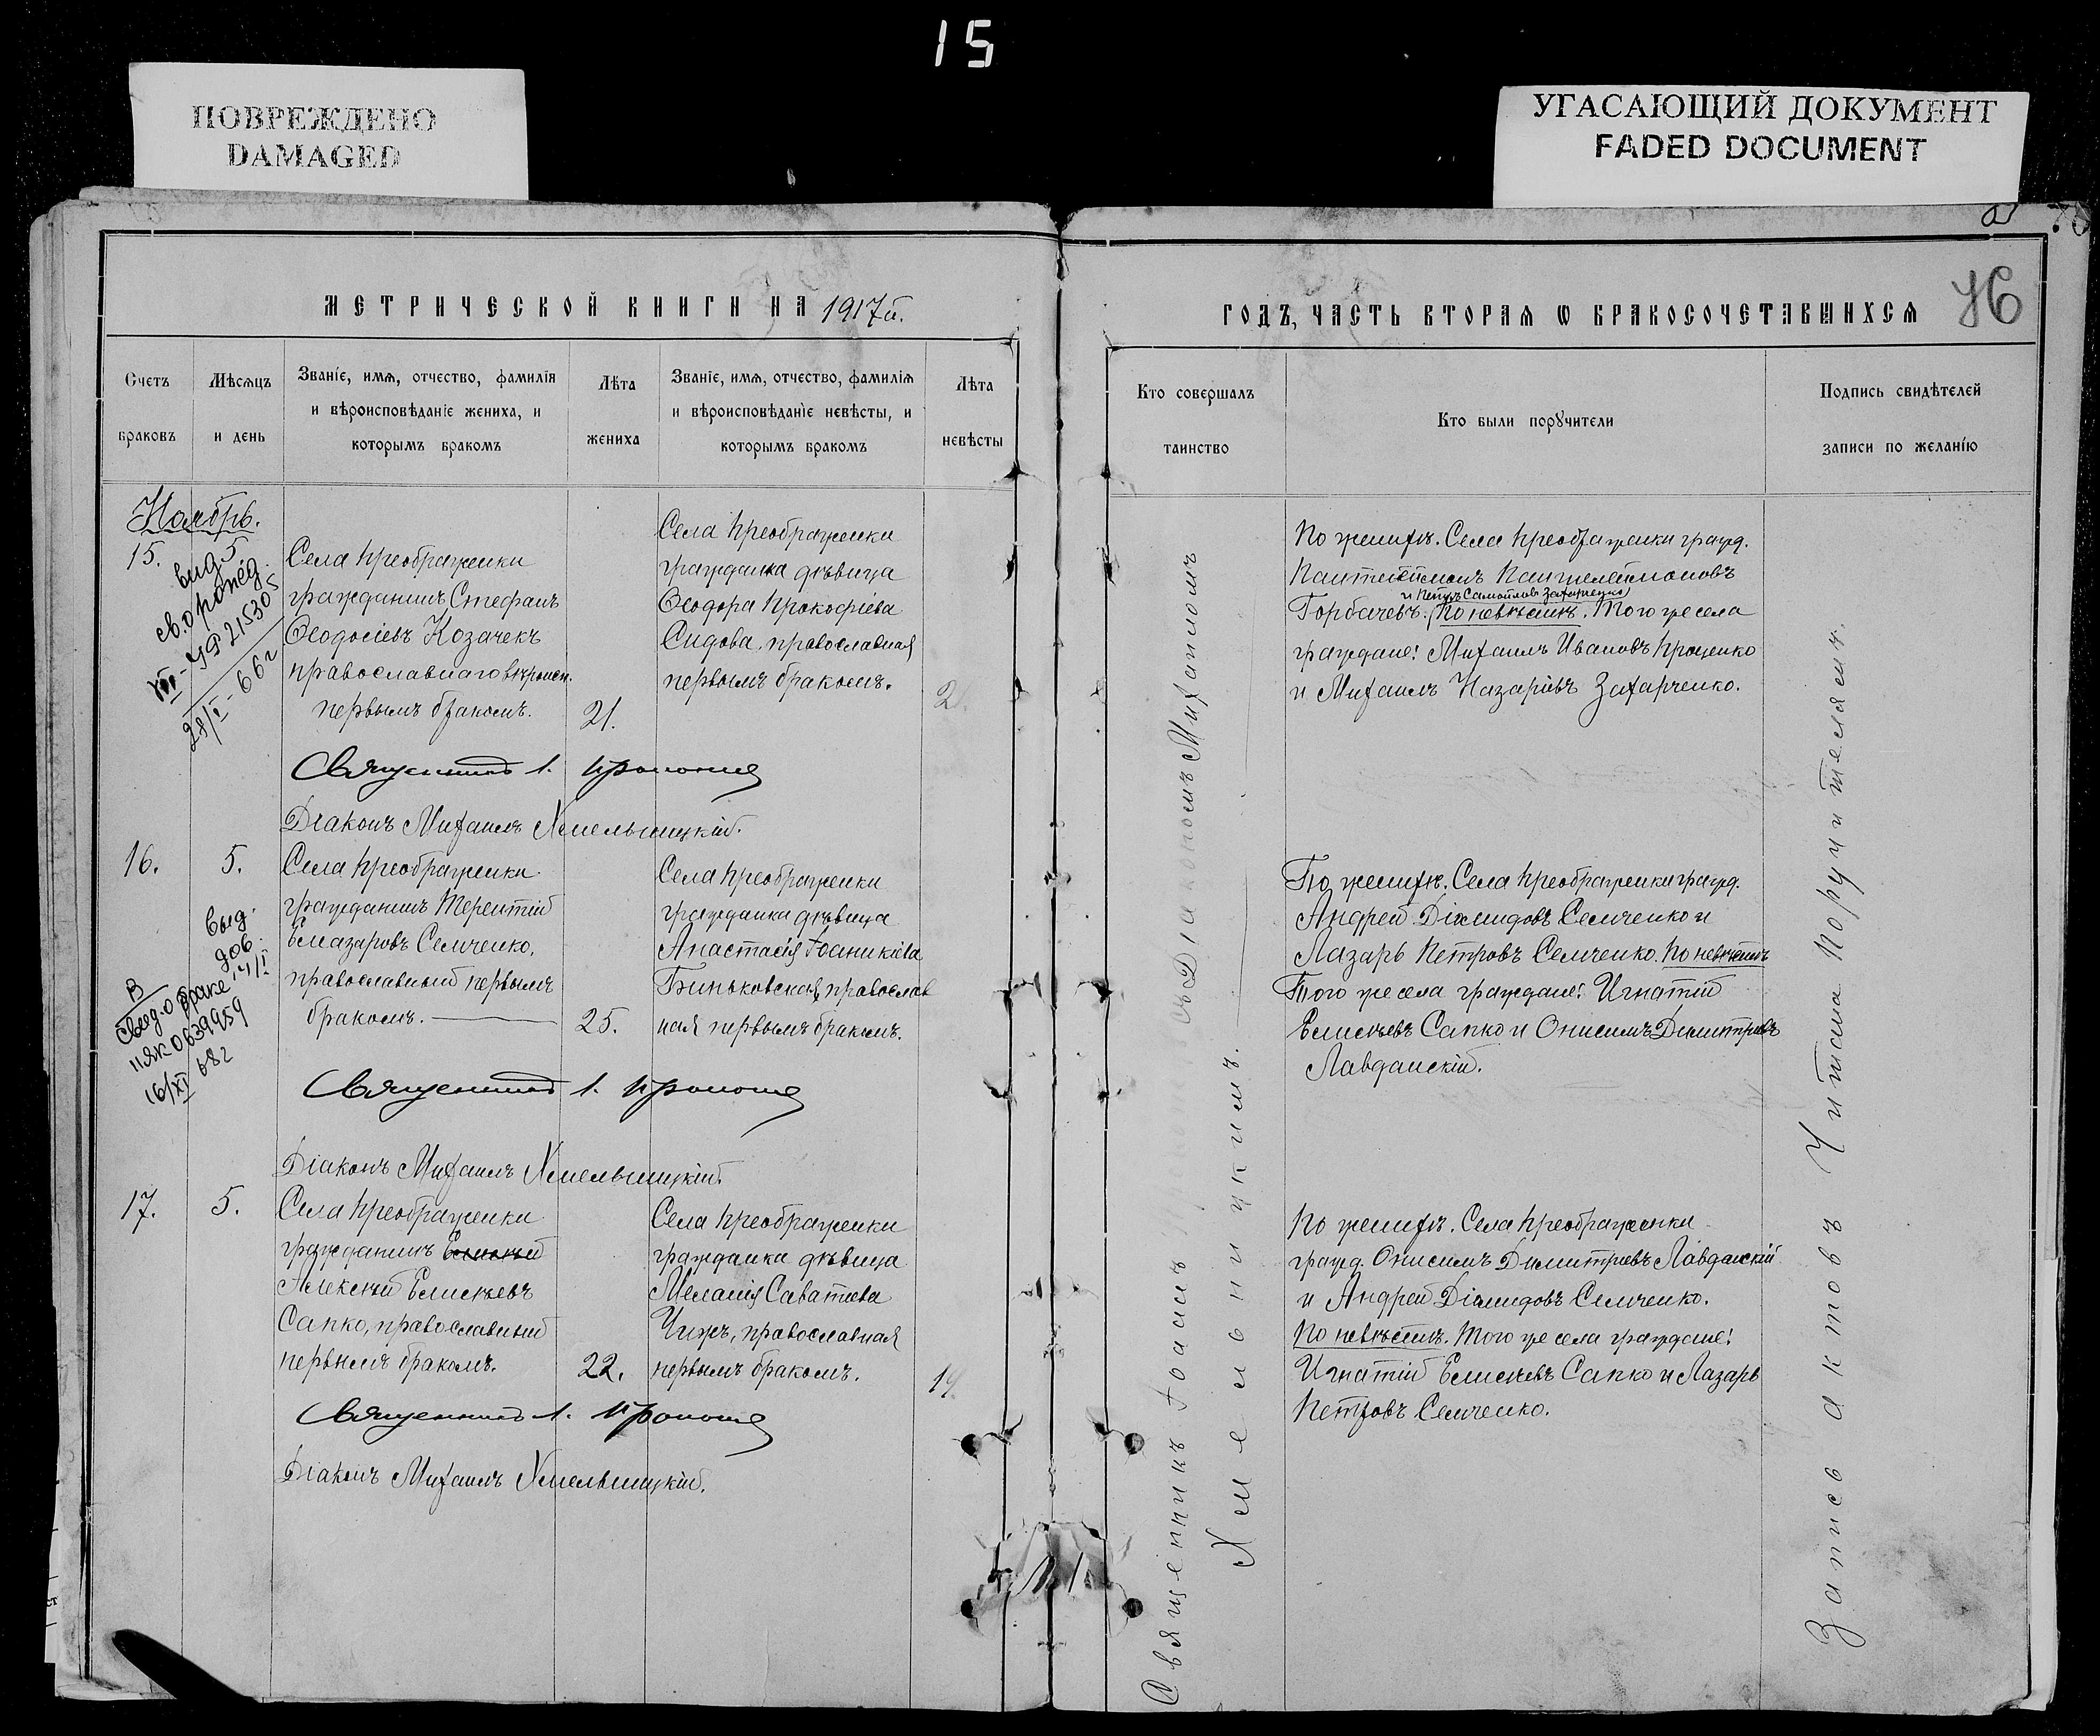 15
ПОВРЕЖДЕНО
DAMAGED
УГАСАЮЩИЙ ДОКУМЕНТ
FADED DOCUMENT
МЕТРИЧЕСКОЙ КНИГИ НА 1917й.
Счетъ
браковъ
Мѣсяцъ
и день
Званіе, имя, отчество, фамилія
и вѣроисповѣданіе жениха, и
которымъ бракомъ
Лѣта
жениха
Званіе, имя, отчество, фамилія
и вѣроисповѣданіе невѣсты, и
которымъ бракомъ
Лѣта
невѣсты
Ноябрь.
15.
5
выд.
св. о рожд.
УР 215305
28/I-66г
Села Преображенки
гражданинъ Стефанъ
Ѳеодосіевъ Козачекъ
православнаго вѣроисп.
первымъ бракомъ.
21.
Села Преображенки
гражданка дѣвица
Ѳеодора Прокофіева
Сидова, православная
первымъ бракомъ.
2
Священникъ І.
Діаконъ Михаилъ Хмельницкій.
16.
5.
выд.
дов.
14/I
В
свид. о браке
ІІЯК 0639959
16/XI 68г
Села Преображенки
гражданинъ Терентій
Елеазаровъ Семченко,
православный первымъ
бракомъ.
25.
Села Преображенки
гражданка дѣвица
Анастасія Іоаникіева
Биньковская, православ
ная первымъ бракомъ.
Священникъ І.
Діаконъ Михаилъ Хмельницкій.
17.
5.
Села Преображенки
гражданинъ
Алексѣй Елисѣевъ
Сапко, православный
первымъ бракомъ.
22.
Села Преображенки
гражданка дѣвица
Меланія Саватіева
Чижъ, православная
первымъ бракомъ.
19
Священникъ І.
Діаконъ Михаилъ Хмельницкій.
ГОДЪ, ЧАСТЬ ВТОРАЯ Ѡ БРАКОСОЧЕТАВШИХСЯ
76
Кто совершалъ
таинство
Кто были поручители
Подпись свидѣтелей
записи по желанію
Священникъ Іоаннъ съ Діакономъ Михаиломъ
Хмельницкимъ.
По женихѣ. Села Преображенки гражд.
Пантелеимонъ Пантелеимоновъ
и Петръ Самойловъ Захарченко
Горбачевъ. По невѣстѣ. Того же села
граждане: Михаилъ Ивановъ Проценко
и Михаилъ Назаріевъ Захарченко.
По женихѣ. Села Преображенки гражд.
Андрей Діамидовъ Семченко и
Лазарь Петровъ Семченко. По невѣстѣ
Того же села граждане: Игнатій
Елисѣевъ Сапко и Онисимъ Димитріевъ
Лавданскій.
По женихѣ. Села Преображенки
гражд. Онисимъ Димитріевъ Лавданскій
и Андрей Діамидовъ Семченко.
По невѣстѣ. Того же села граждане:
Игнатій Елисѣевъ Сапко и Лазарь
Петровъ Семченко.
Запись актовъ читана поручителямъ.